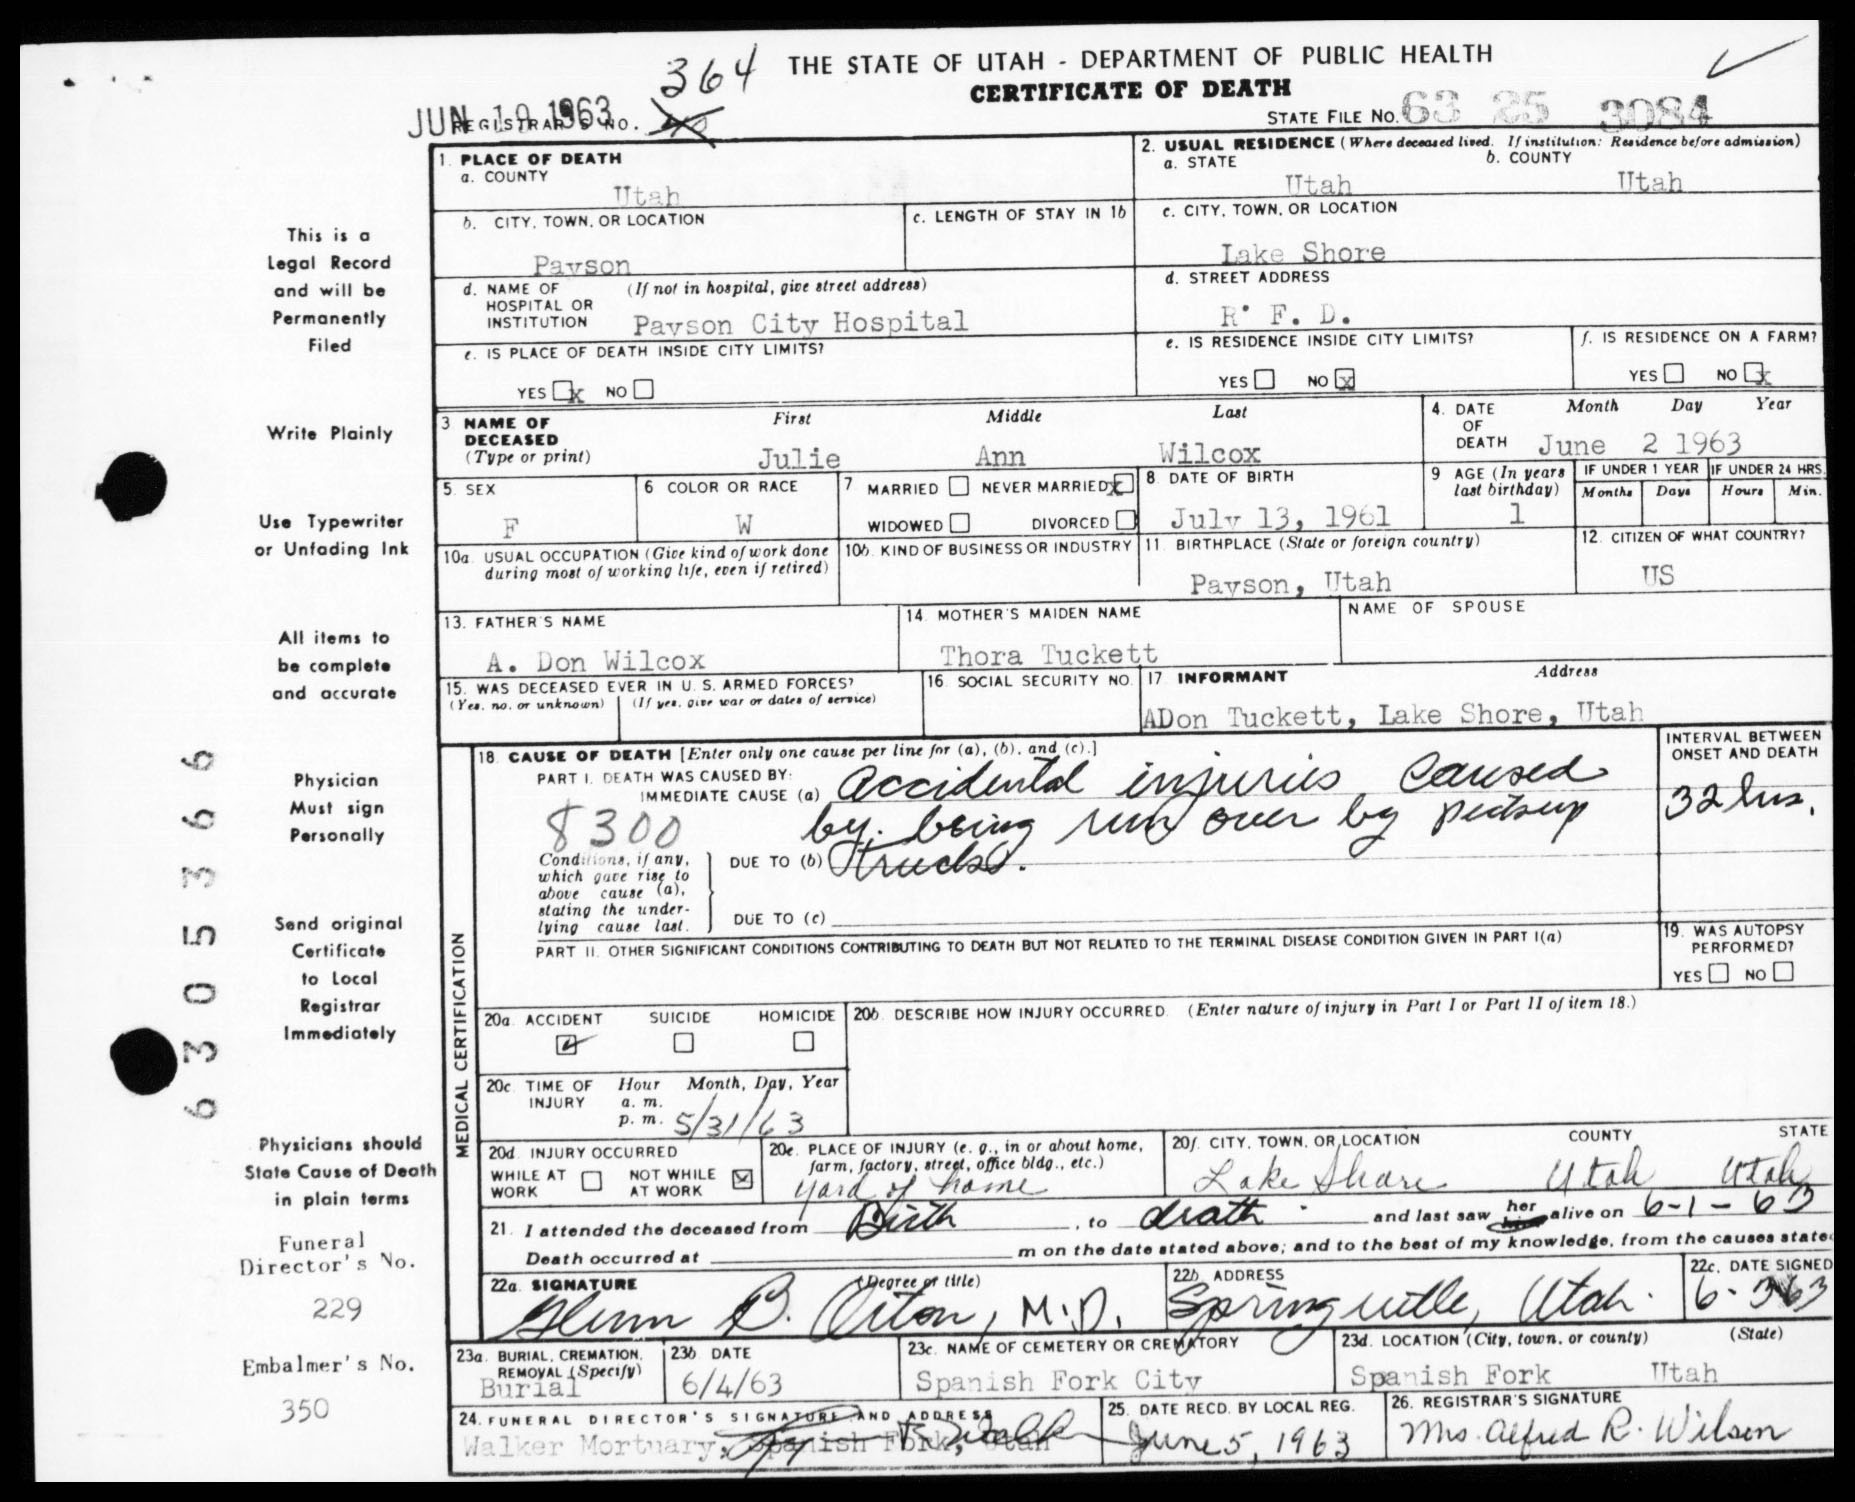 364 THE STATE OF UTAH - DEPARTMENT OF PUBLIC HEALTH
CERTIFICATE OF DEATH
JUN 10 1963
REGISTRAR'S NO.
STATE FILE NO. 63 25 3084
1. PLACE OF DEATH
a. COUNTY
Utah
2. USUAL RESIDENCE (Where deceased lived. If institution: Residence before admission)
a. STATE b. COUNTY
Utah Utah
b. CITY, TOWN, OR LOCATION
Payson
c. LENGTH OF STAY IN 1b
c. CITY, TOWN, OR LOCATION
Lake Shore
d. NAME OF HOSPITAL OR INSTITUTION (If not in hospital, give street address)
Payson City Hospital
d. STREET ADDRESS
R. F. D.
e. IS PLACE OF DEATH INSIDE CITY LIMITS?
YES x NO
e. IS RESIDENCE INSIDE CITY LIMITS?
YES NO x
f. IS RESIDENCE ON A FARM?
YES NO x
3 NAME OF DECEASED (Type or print)
First Middle Last
Julie Ann Wilcox
4. DATE OF DEATH
Month Day Year
June 2 1963
5. SEX
F
6 COLOR OR RACE
W
7 MARRIED NEVER MARRIED x
WIDOWED DIVORCED
8 DATE OF BIRTH
July 13, 1961
9 AGE (In years last birthday)
1
IF UNDER 1 YEAR IF UNDER 24 HRS.
Months Days Hours Min.
10a USUAL OCCUPATION (Give kind of work done during most of working life, even if retired)
10b. KIND OF BUSINESS OR INDUSTRY
11. BIRTHPLACE (State or foreign country)
Payson, Utah
12. CITIZEN OF WHAT COUNTRY?
US
13. FATHER'S NAME
A. Don Wilcox
14. MOTHER'S MAIDEN NAME
Thora Tuckett
NAME OF SPOUSE
15. WAS DECEASED EVER IN U. S. ARMED FORCES?
(Yes, no, or unknown) (If yes, give war or dates of service)
16. SOCIAL SECURITY NO.
17. INFORMANT Address
ADon Tuckett, Lake Shore, Utah
MEDICAL CERTIFICATION
18. CAUSE OF DEATH [Enter only one cause per line for (a), (b), and (c).]
PART I. DEATH WAS CAUSED BY:
IMMEDIATE CAUSE (a) Accidental injuries Caused
by being run over by pickup
8300
Conditions, if any, which gave rise to above cause (a), stating the underlying cause last.
DUE TO (b) truck.
DUE TO (c)
INTERVAL BETWEEN ONSET AND DEATH
32 hrs.
PART II. OTHER SIGNIFICANT CONDITIONS CONTRIBUTING TO DEATH BUT NOT RELATED TO THE TERMINAL DISEASE CONDITION GIVEN IN PART I(a)
19. WAS AUTOPSY PERFORMED?
YES NO
20a. ACCIDENT SUICIDE HOMICIDE
20b. DESCRIBE HOW INJURY OCCURRED. (Enter nature of injury in Part I or Part II of item 18.)
20c. TIME OF INJURY
Hour Month, Day, Year
a. m.
p. m. 5/31/63
20d INJURY OCCURRED
WHILE AT WORK NOT WHILE AT WORK x
20e. PLACE OF INJURY (e. g., in or about home, farm, factory, street, office bldg., etc.)
yard of home
20f. CITY, TOWN, OR LOCATION COUNTY STATE
Lake Shore Utah Utah
21. I attended the deceased from Birth, to death and last saw her him alive on 6-1-63
Death occurred at m on the date stated above; and to the best of my knowledge, from the causes state
22a. SIGNATURE (Degree or title)
Glenn B. Orton, M.D.
22b. ADDRESS
Springville, Utah.
22c. DATE SIGNED
6-3-63
23a. BURIAL, CREMATION, REMOVAL (Specify)
Burial
23b DATE
6/4/63
23c. NAME OF CEMETERY OR CREMATORY
Spanish Fork City
23d. LOCATION (City, town, or county) (State)
Spanish Fork Utah
24. FUNERAL DIRECTOR'S SIGNATURE AND ADDRESS
Walker Mortuary, Spanish Fork, Utah
25. DATE RECD. BY LOCAL REG.
June 5, 1963
26. REGISTRAR'S SIGNATURE
Mrs. Alfred R. Wilson
This is a
Legal Record
and will be
Permanently
Filed
Write Plainly
Use Typewriter
or Unfading Ink
All items to
be complete
and accurate
Physician
Must sign
Personally
Send original
Certificate
to Local
Registrar
Immediately
Physicians should
State Cause of Death
in plain terms
Funeral
Director's No.
229
Embalmer's No.
350
63053366